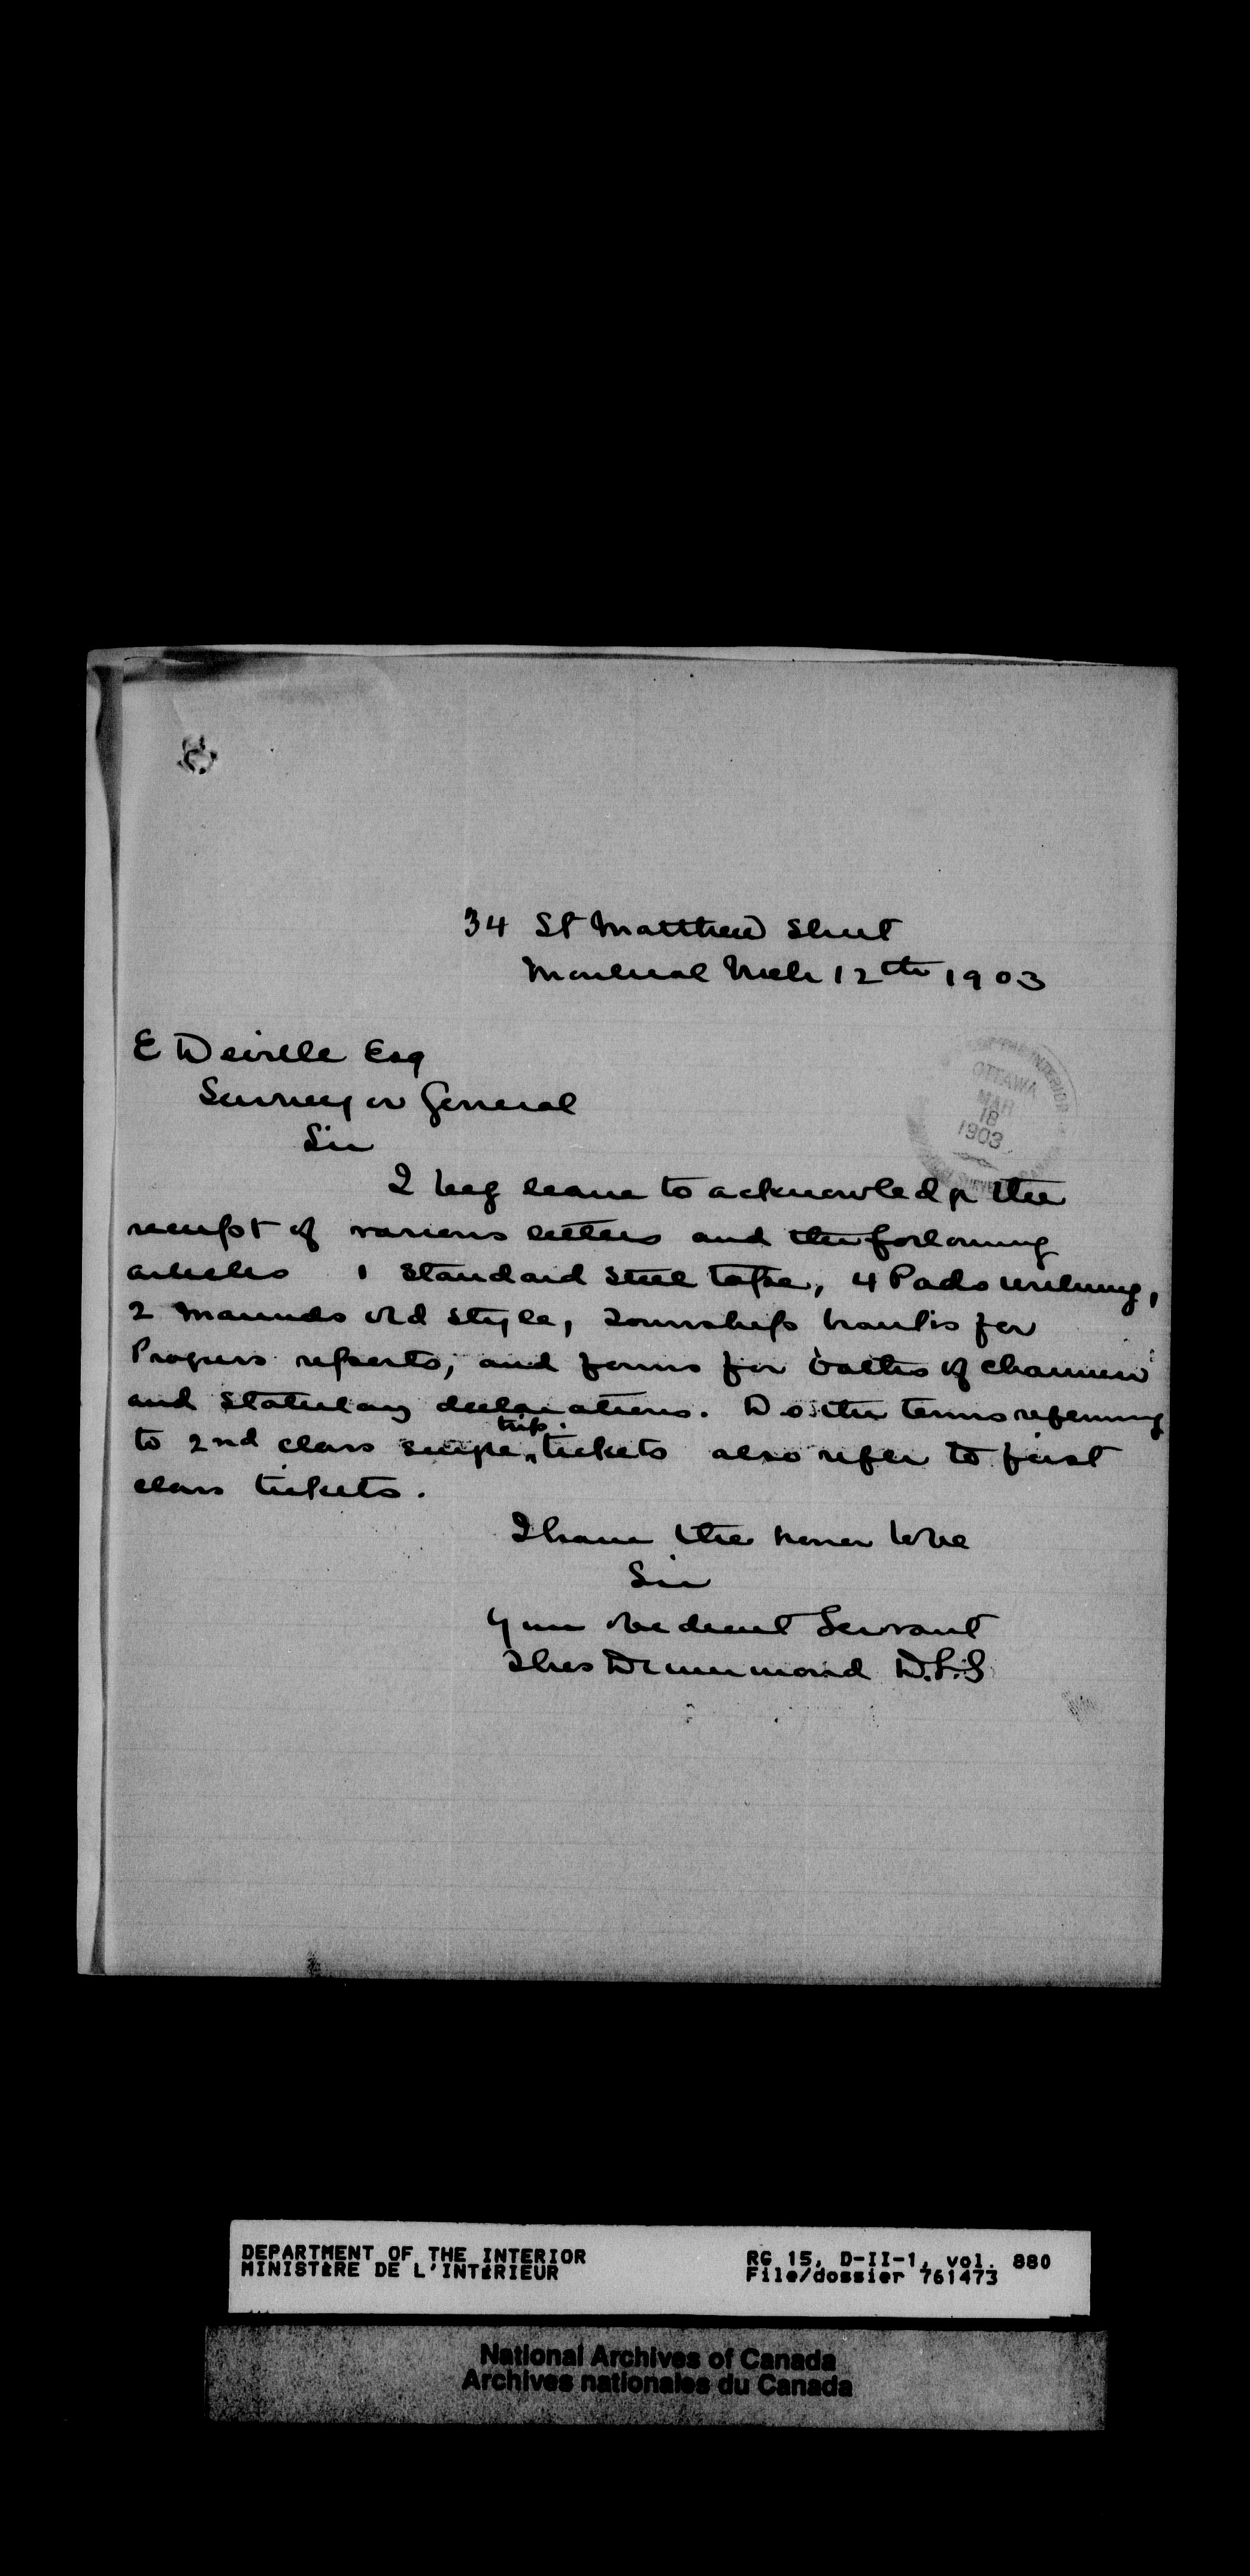 34 St Matthew Street
Montreal Mch 12th 1903
E Deville Esq
Surveyor General
Sir
I beg leave to acknowledge the
receipt of various letters and the following
articles 1 Standard Steel tape, 4 Pads
2 Manuals old style, Township for
Progress reports, and forms for oaths of chainmen
and Statutary declarations. Do the terms referring
to 2nd class single trip tickets also refer to first
class tickets.
I have the honor to be
Sir
Your obedient Servant
Thos Drummond D.L.S
OTTAWA
MAR
18
1903
DEPARTMENT OF THE INTERIOR
MINISTÈRE DE L'INTÉRIEUR
RG 15, D-II-1, vol. 880
File/dossier 761473
National Archives of Canada
Archives nationales du Canada